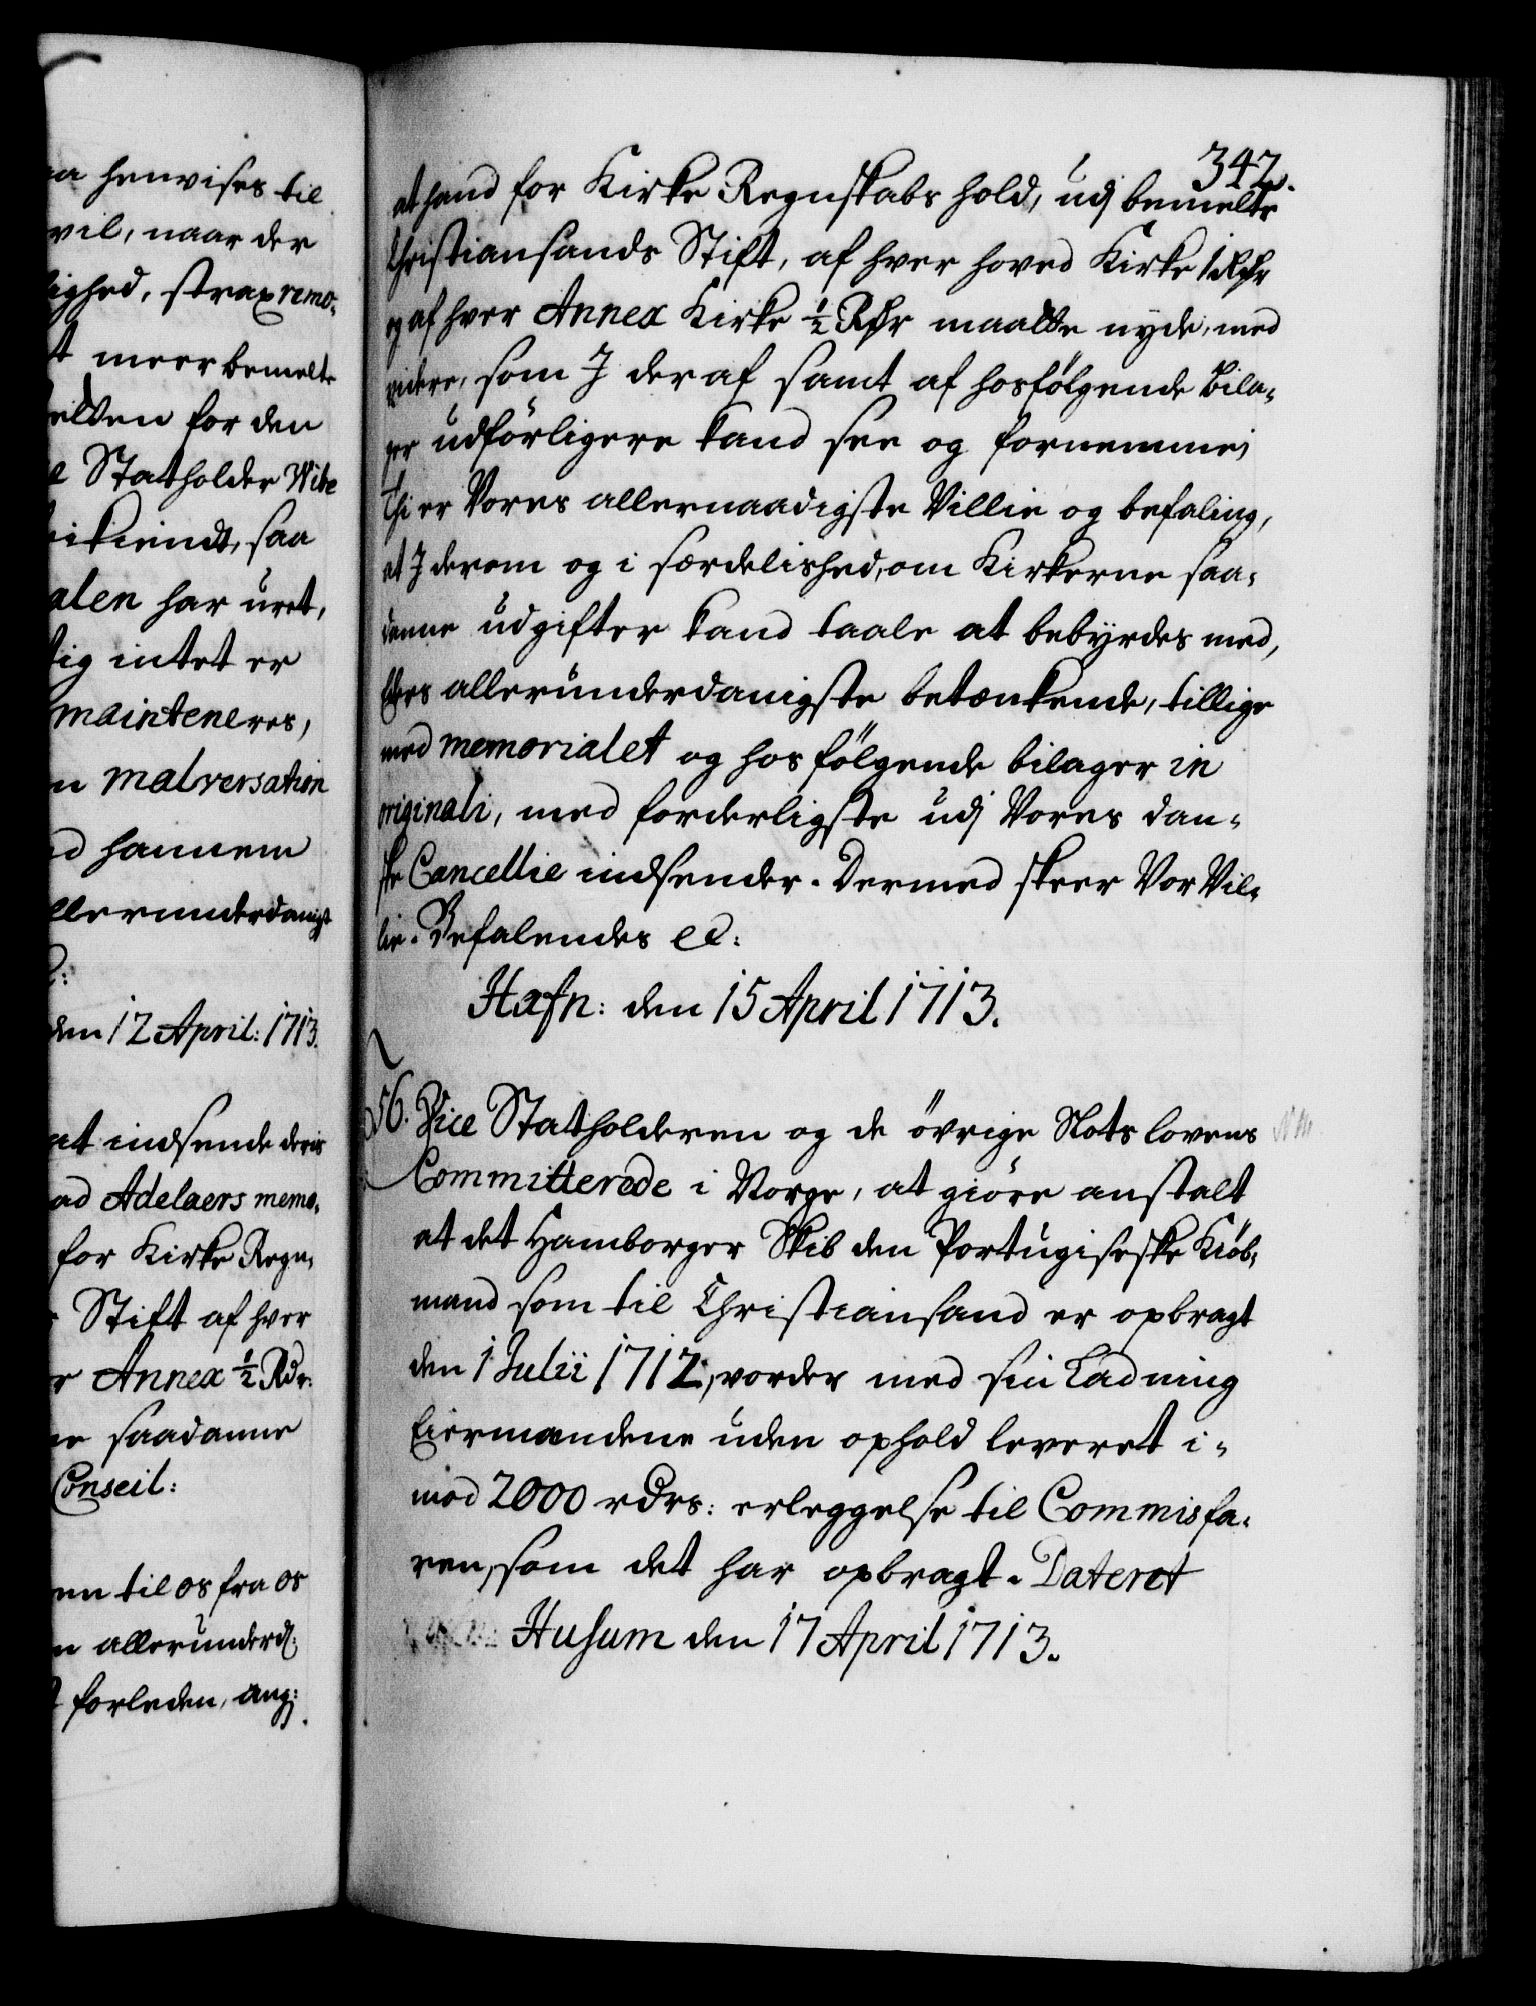 aa henvises til
vil, naar der
lighed, strax remo-
t meerbemelte
elten for den
e Statholder Wibe
ikiendt, saa
alen har uret,
tig intet er
mainteneres,
n malversation
d hannem
llerunderdanigst
den 12 April: 1713.
at indsende deris
ad Adelaers memo-
for Kirke Regn-
Stift af hver
r Annex ½ Rdr.
ne saadanne
Conseil:
en til os fra os
n allerunderd:
forleden, ang:
342.
at hand for Kirke Regnskabs hold, udj bemelte
Christiansands Stift, af hver hoved Kirke 1 Rdr
og af hver Annex Kirke ½ Rdr maatte nyde, med
videre, som I deraf samt af hosfölgende bila-
ger udförligere kand see og fornemme;
Thi er Vores allernaadigste Villie og befaling,
at I derom og i særdelished, om Kirkerne saa-
danne udgifter kand taale at bebyrdes med,
Eders allerunderdanigste betænkende, tillige
med memorialet og hos fölgende bilager in
originali, med forderligste udj Vores dan-
ske Cancellie indsender. Dermed skeer Vor Vil-
lie. Befalendes etc:
Hafn: den 15 April 1713.
56. Vice Statholderen og de övrige Slots lovens
Committerede i Norge, at giöre anstalt
at det Hamborger Skib den Portugiseske Kiöb-
mand som til Christiansand er opbragt
den 1 Julii 1712, vorder med sin Ladning
Eiermandene uden ophold leveret i-
mod 2000 rdrs: erleggelse til Commisfa-
ren, som det har opbragt. Dateret
Husum den 17 April 1713.